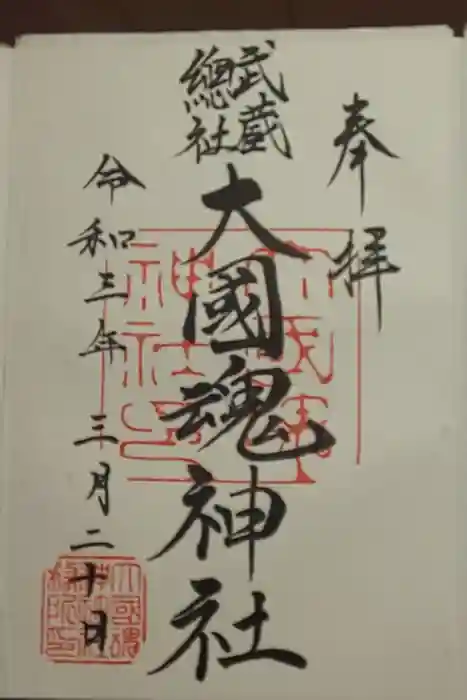 奉拝
武蔵
總社
大國魂神社
令和三年 三月二十日